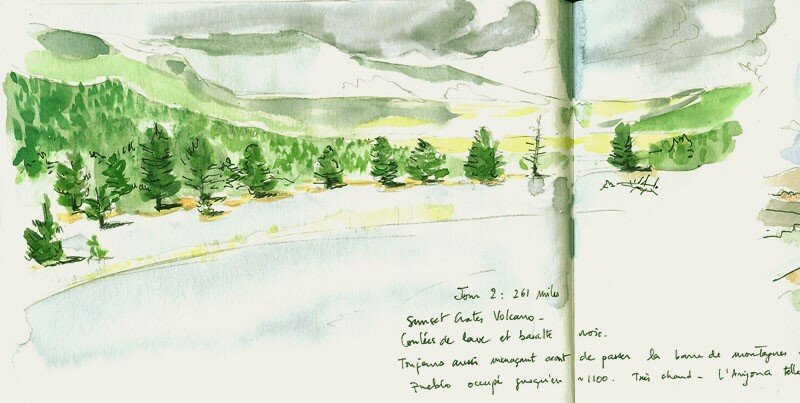 Jour 2 : 261 miles
Sunset Crater Volcano -
Coulées de lave et basalte noir.
Toujours aussi menaçant avant de passer la barre de montagnes -
Pueblo occupé jusqu'en ~1100. Très chaud - L'Arizona telle